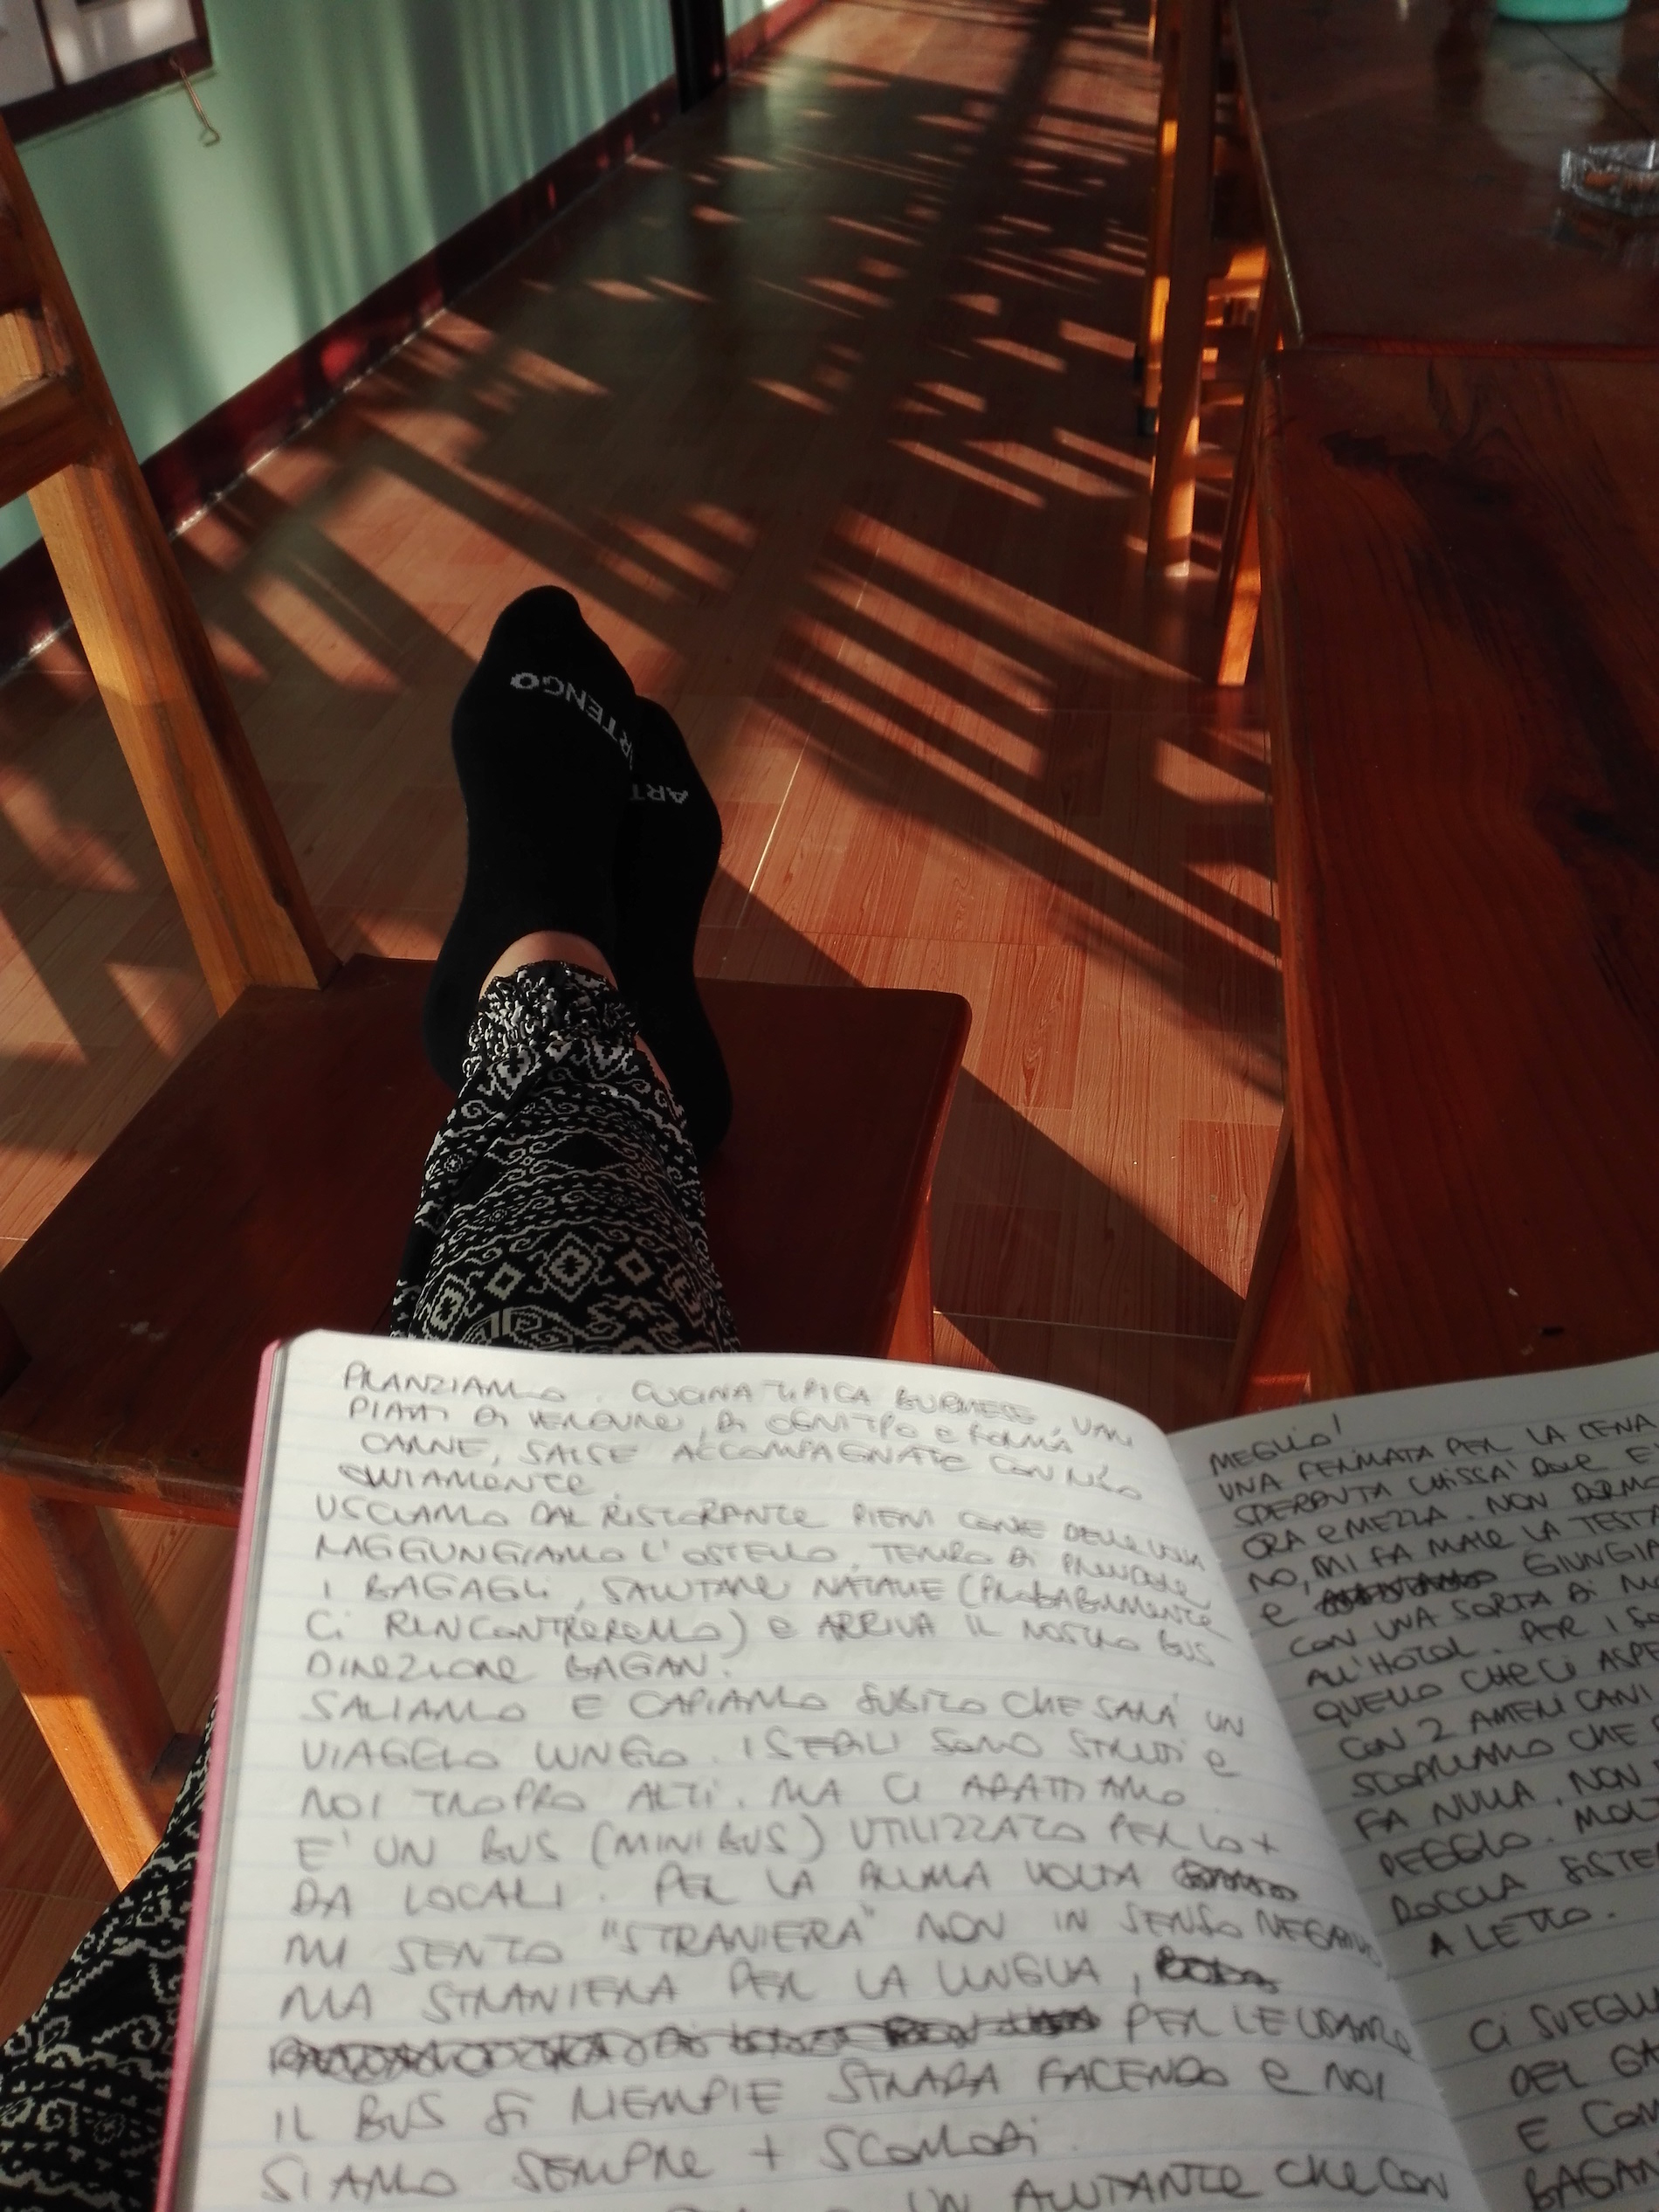 ARTENGO
ART
PRANZIAMO. CUCINA TIPICA BURMESE, VARI
PIATTI DI VERDURE, DI OGNI TIPO E FORMA
CARNE, SALSE ACCOMPAGNATE CON RISO
OVVIAMENTE.
USCIAMO DAL RISTORANTE PIENI COME DELLE UOVA
RAGGIUNGIAMO L'OSTELLO, TEMPO DI PRENDERE
I BAGAGLI, SALUTARE NATALIE (PROBABILMENTE
CI RINCONTREREMO) E ARRIVA IL NOSTRO BUS
DIREZIONE BAGAN.
SALIAMO E CAPIAMO SUBITO CHE SARÀ UN
VIAGGIO LUNGO. I SEDILI SONO STRETTI E
NOI TROPPO ALTI. MA CI ADATTIAMO.
E' UN BUS (MINIBUS) UTILIZZATO PER LO +
DA LOCALI. PER LA PRIMA VOLTA
MI SENTO "STRANIERA" NON IN SENSO NEGATIVO
MA STRANIERA PER LA LINGUA,
PER LE USANZE
IL BUS SI RIEMPIE STRADA FACENDO E NOI
SIAMO SEMPRE + SCOMODI.
UN AIUTANTE CHE CON
MEGLIO!
UNA FERMATA PER LA CENA
SPERDUTA CHISSA' DOVE E
ORA E MEZZA. NON DORMO
NO, MI FA MALE LA TESTA
E GIUNGIA
CON UNA SORTA DI
ALL'HOTEL. PER I
QUELLO CHE CI ASPE
CON 2 AMERICANI
SCOPRIAMO CHE
FA NULLA, NON
PEGGIO. MOLT
DOCCIA SISTE
A LETTO.
CI SVEGLI
DEL GA
E COM
BAGAN